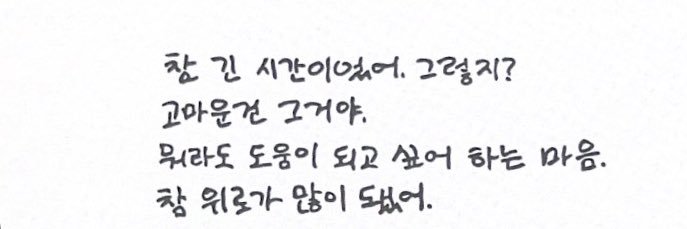 참 긴 시간이었어. 그렇지?
고마운건 그거야.
뭐라도 도움이 되고 싶어 하는 마음.
참 위로가 많이 됐었어.